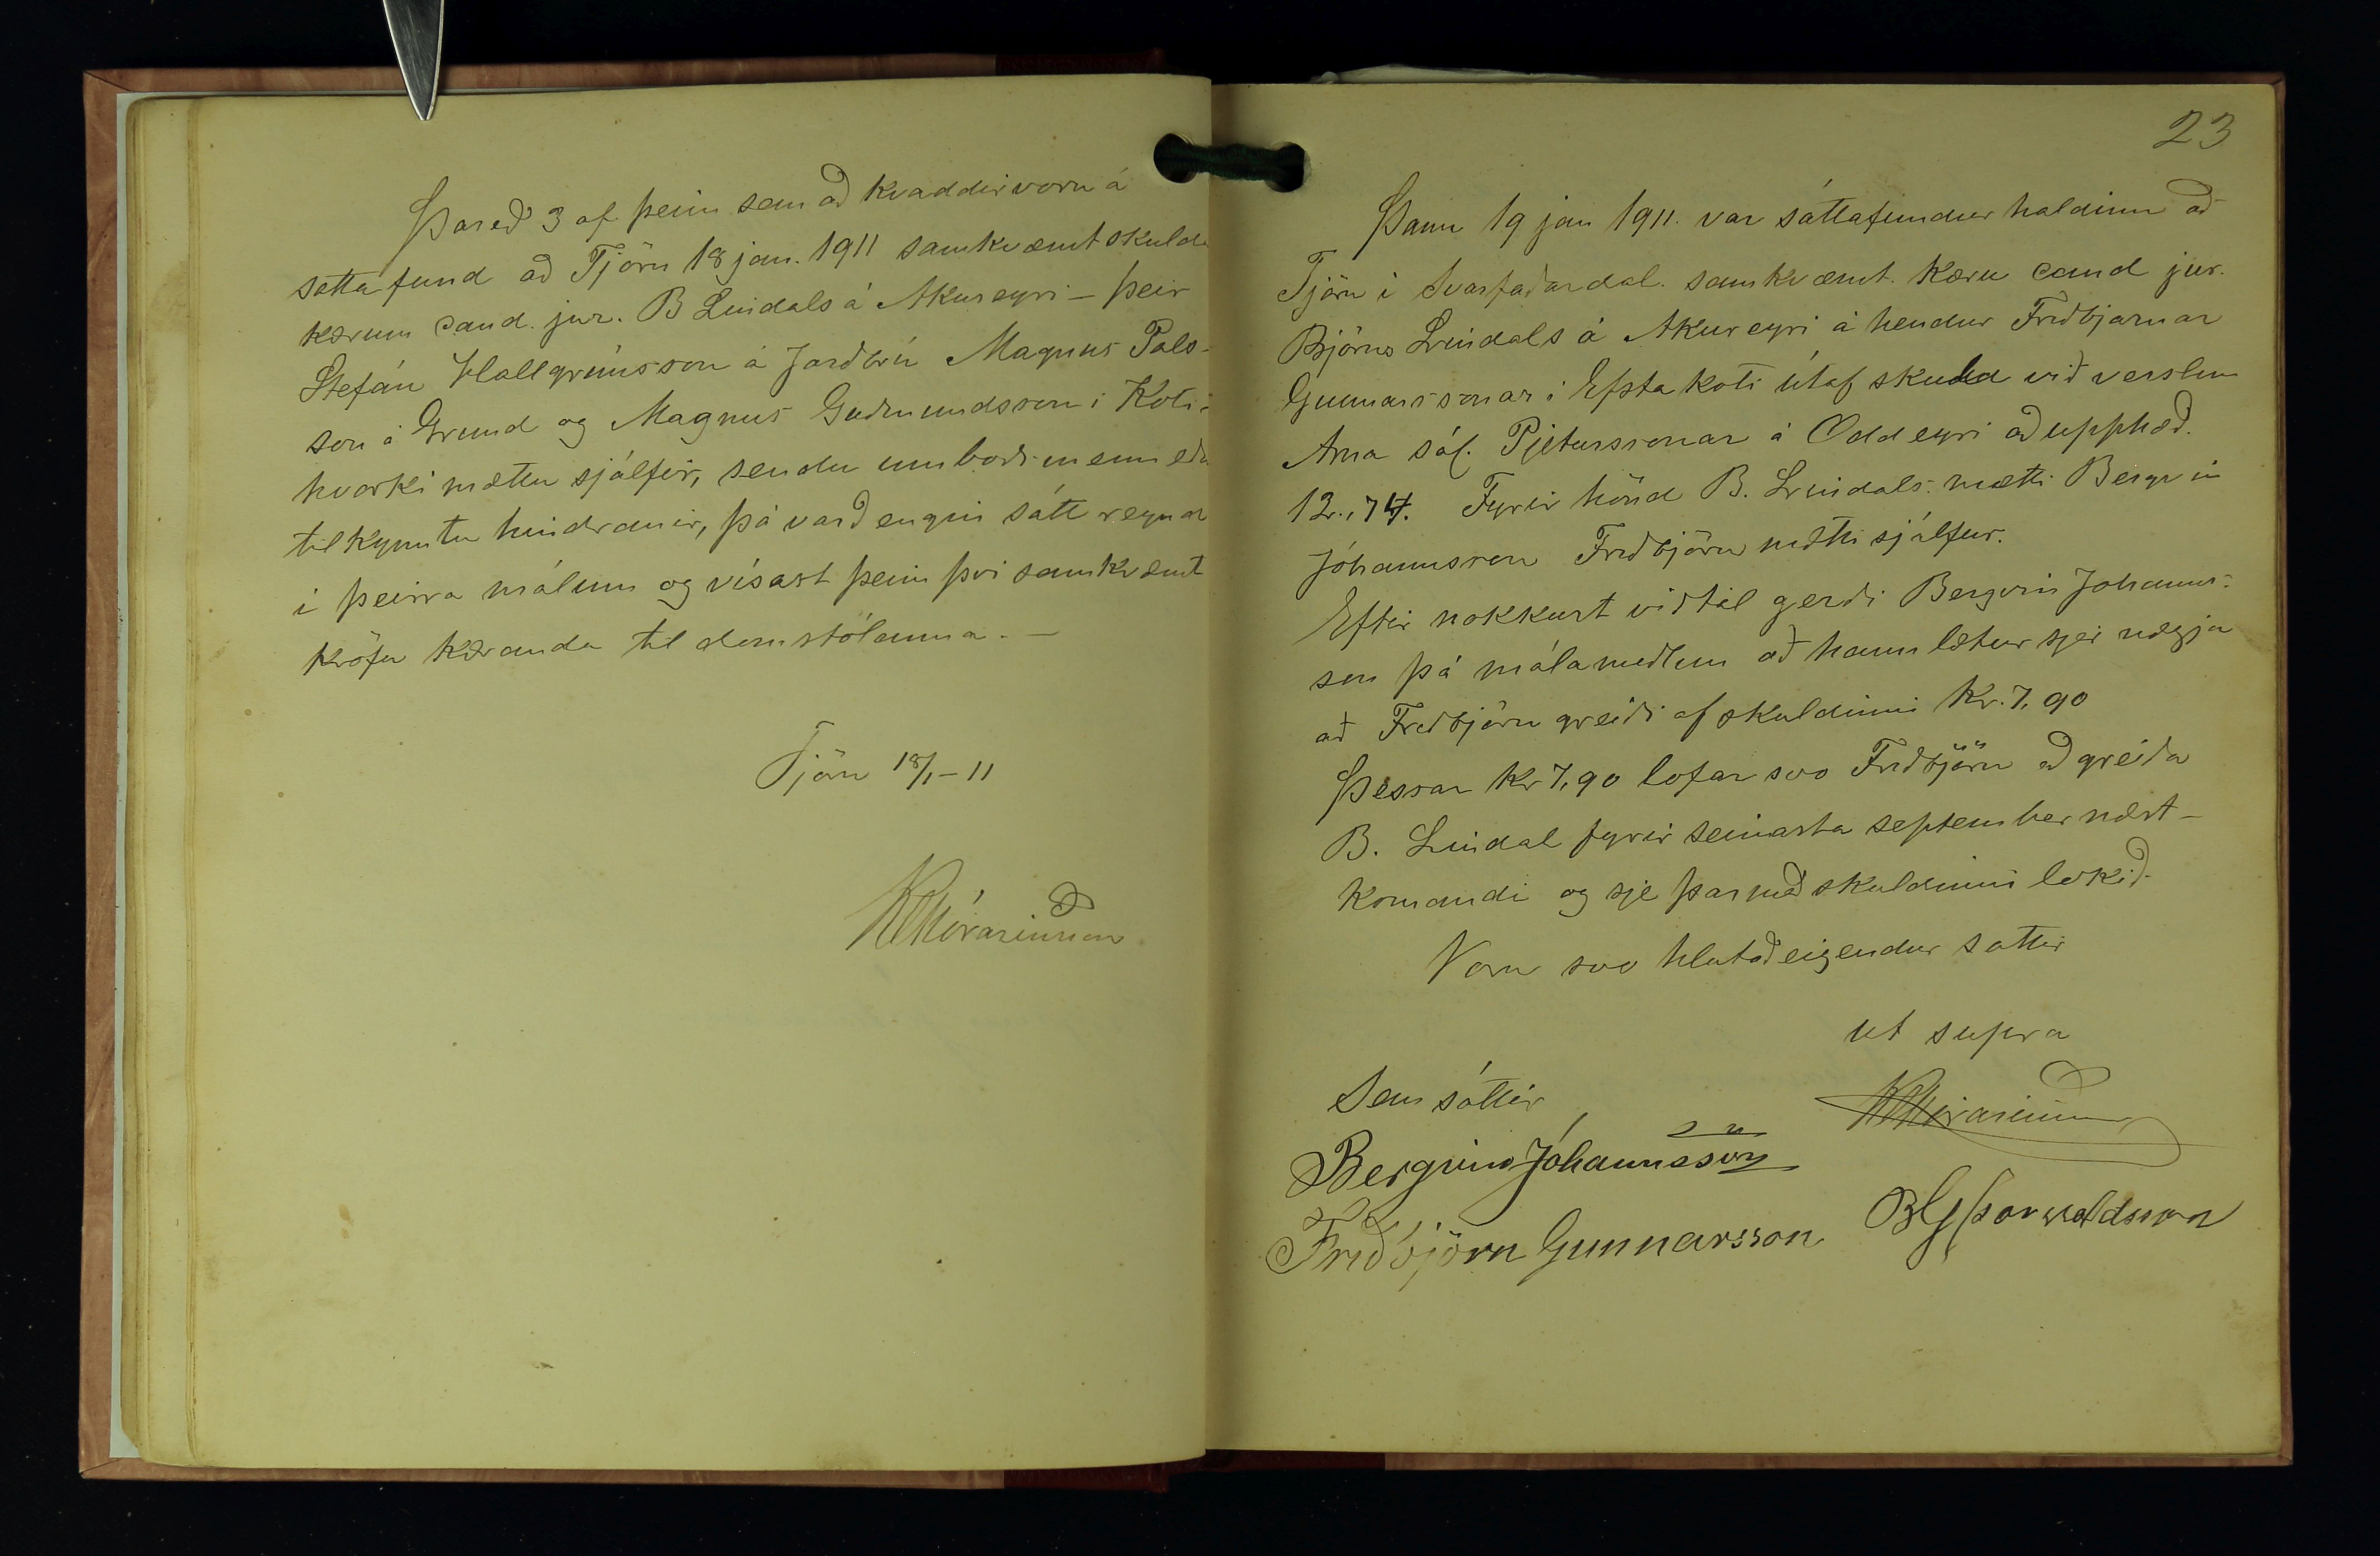 Þareð 3 af þeim sem að kvaddir voru á
sáttafund að Tjörn 18 jan. 1911 samkvæmt skulda
kærum cand. jur. B Lindals á Akureyri – þeir
Stefán Hallgrímsson á Jarðbrú Magnus Pals-
son á Grund og Magnus Guðmundsson í Koti-
hvorki mættu sjálfir, sendu umboðsmenn eða
tilkynntu hindranir, þá varð engin sátt reynd
í þeirra málum og vísast þeim því samkvæmt
kröfu kæranda til domstólanna. –
Tjörn 18/1–11
KrÞórarinsson
23
Þann 19 jan 1911. var sáttafundur haldinn að
Tjörn í Svarfaðardal. samkvæmt. kæru cand jur.
Björns Lindals á Akureyri á hendur Friðbjarnar
Gunnarssonar í Efstakoti útaf skuld við verslun
Arna sál. Pjeturssonar á Oddeyri að upphæð.
12.,74. Fyrir hönd B. Lindals mætti Bergvin
Jóhannsson Friðbjörn mætti sjálfur.
Eftir nokkurt viðtal gerði Bergvin Johanns-
son þá málamiðlun að hann lætur sjer nægja
að Friðbjörn greiði af skuldinni Kr. 7,90
Þessar kr 7,90 lofar svo Friðbjörn að greiða
B. Lindal fyrir seinasta september næst-
komandi og sje þar með skuldinni lokið.
Voru svo hlutaðeigendur sattir
ut supra
Sem sáttir
KrÞórarinsson
Bergvin Jóhannsson
BGÞorvaldsson
Friðbjörn Gunnarsson